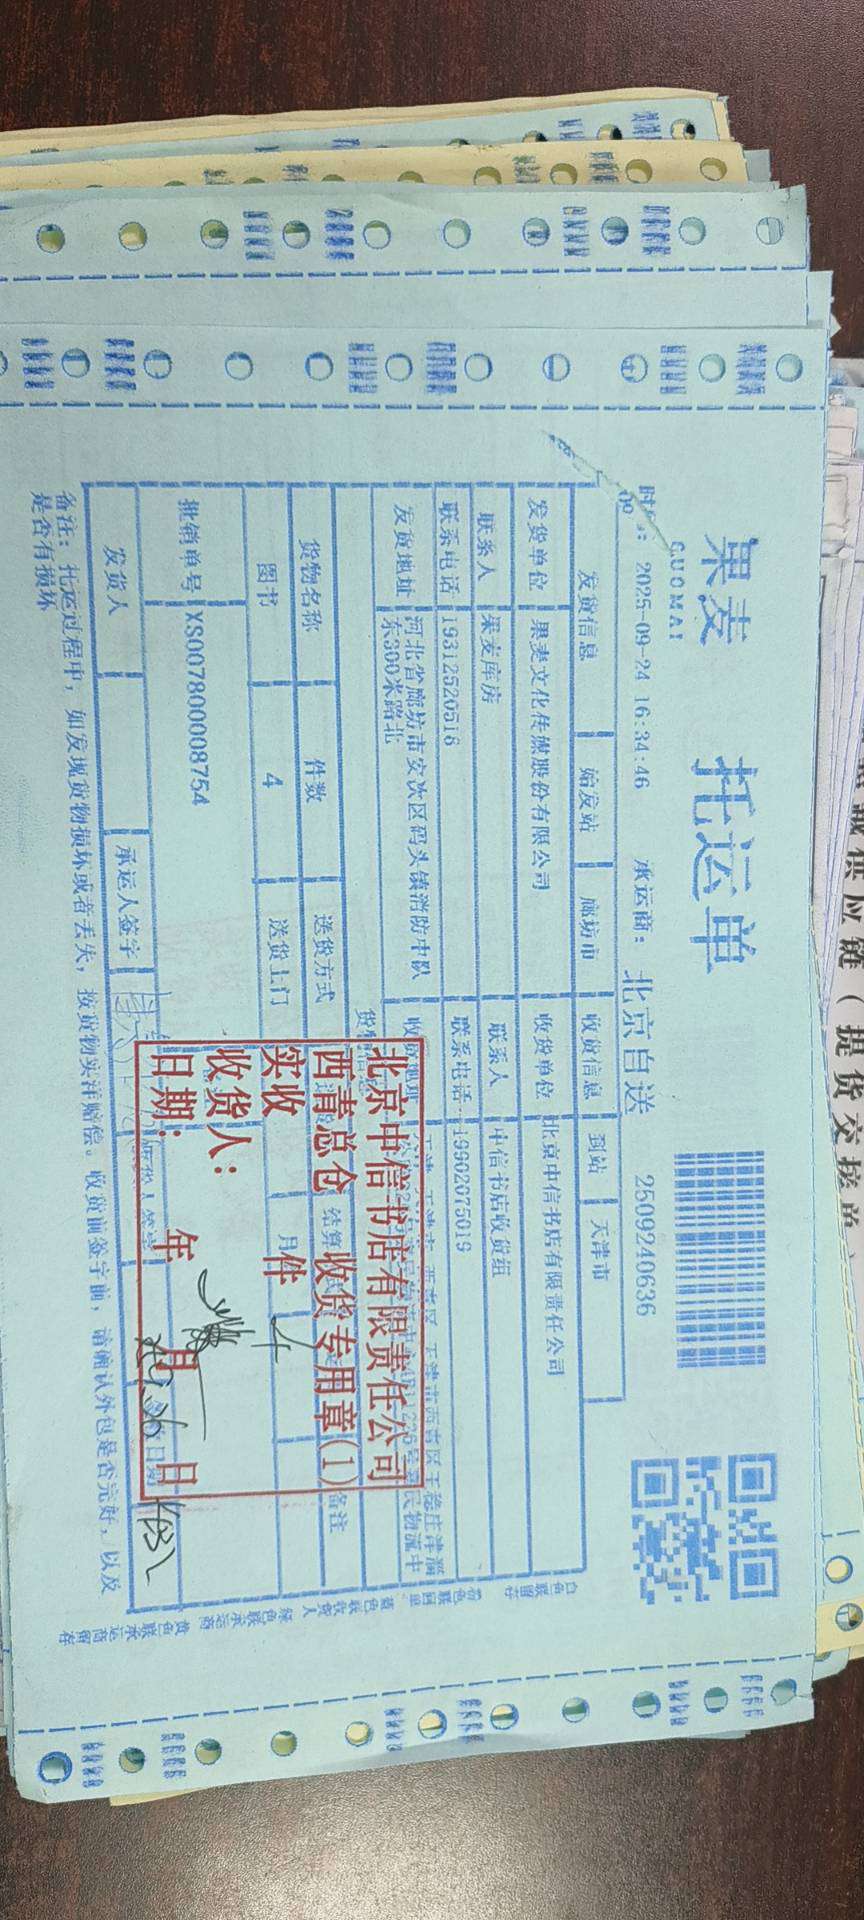 果麦
GUOMAI
托运单
2025-09-24 16:34:46
承运商：北京自送
2509240636
发货信息 始发站 廊坊市 收货信息 到站 天津市
发货单位 果麦文化传媒股份有限公司 收货单位 北京中信书店有限责任公司
联系人 果麦库房 联系人 中信书店收货组
联系电话 19312520516 联系电话 19902075019
发货地址 河北省廊坊市安次区码头镇消防中队
东300米路北
货物名称 件数 送货方式 备注
图书 4 送货上门 月
批销单号 XS007800008754
发货人 承运人签字
备注：托运过程中，如发现货物损坏或者丢失，按货物实洋赔偿。收货前签字前，请确认外包是否完好，以及
是否有损坏
北京中信书店有限责任公司
西青总仓 收货专用章(1)
实收 4 件
收货人：
日期： 年 月 日
白色联留存
粉色联回单
蓝色联收货人
绿色联承运商
黄色联承运商留存
供应链（提货交接单）